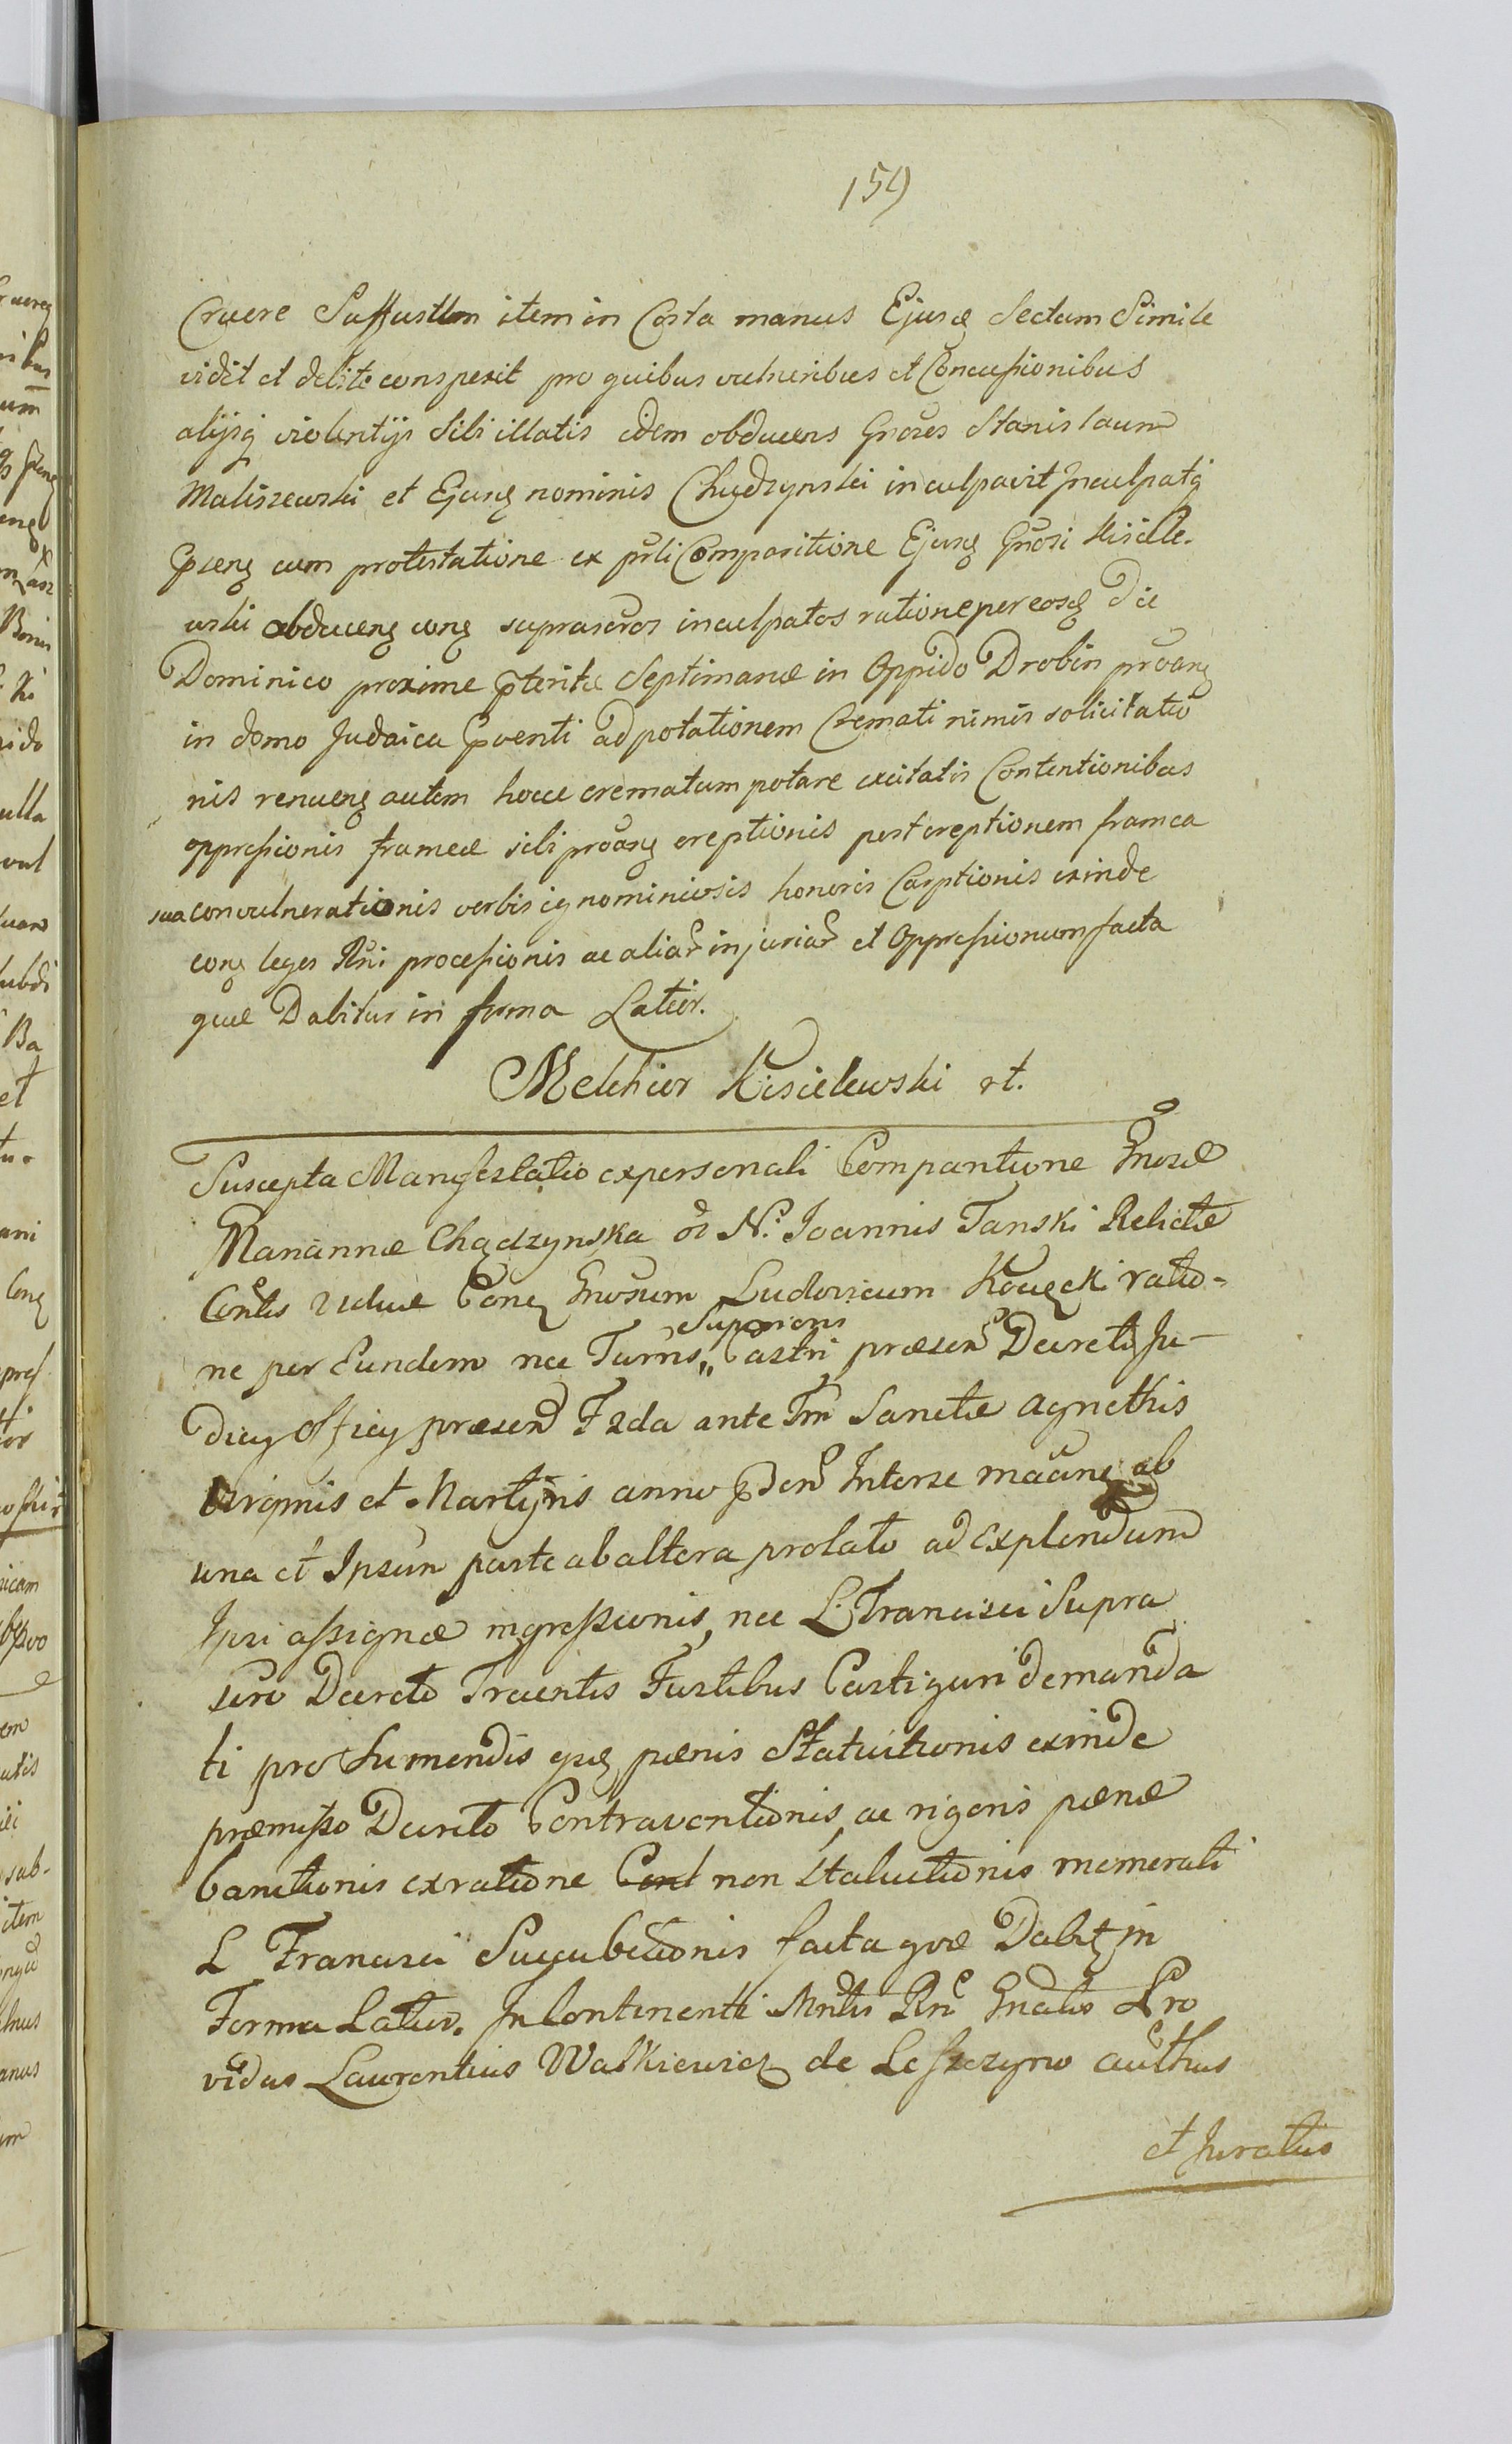 159
Cruore Suffustum item in Costa manus Ejusđ Sectum Simile
vidit et debite conspexit pro quibus vulneribus et Concussionibus
alijsq violentijs sibi illatis idem obducens Gnosos Stanislaum
Maliszewski et Ejusq nominis Chądzynski inculpavit Inculpatq
cum protestatione ex prsli Comparitione Ejusq Gnosi Kisiele-
wski obducenq conq suprascros inculpatos ratione per eosđ die
Dominico proxime pterite Septimanæ in Oppido Drobin proanq
in domo Judaica pventi ad potationem Cremati nimis solicitatio
nis renuenq autem hocce crematum potare excitatis Contentionibus
oppressionis frameæ sibi proanq ereptionis post ereptionem framea
sua convulnerationis verbis ignominiosis honoris Carptionis exinde
conq leges Rni processionis ac aliar injuriar et Oppressionum facta
quæ Dabitur in forma Latior.
Melchior Kisielewski rt.
Suscepta Manifestatio ex personali Comparitione Gnosæ
Mariannæ Chądzynska oł N. Joannis Tanski Relictæ
Contis Viduæ Conq Gnosum Ludovicum Kouęcki ratio-
ne per Eundem nec Turris
Superioris
" Castri præsen Decreto Ju-
dicy Officy præsen Frda ante Fm Sanctæ Agnethis
Virginis et Martyris anno pđen Interse maãnq ab
una et Ipsum parte ab altera prolato ad Explendum
Ipsi assignæ ingressionis, nec L. Francisci Supra
scro Decreto Trecentis Fustibus Castigari demanda
ti pro Sumendis ejusq pænis Statuitionis exinde
præmisso Decreto Contraventionis, ac rigoris pænæ
banitionis ex ratione Cond non Statuitionis memorati
L Francisci Succubitionis facta quæ Dabitq in
Forma Latior. In Continenti Mnlis Rni Gnalis Pro
vidus Laurentius Walkiewicz de Leszczyno authus
et Juratus